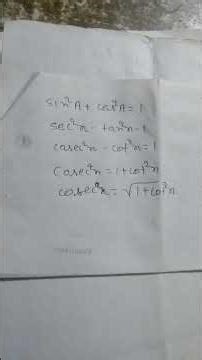 sin²A + cos²A = 1
sec²x - tan²x - 1
cosec²x - cot²x = 1
Cosec²x = 1 + cot²x
cosec²x = √1+cot²x